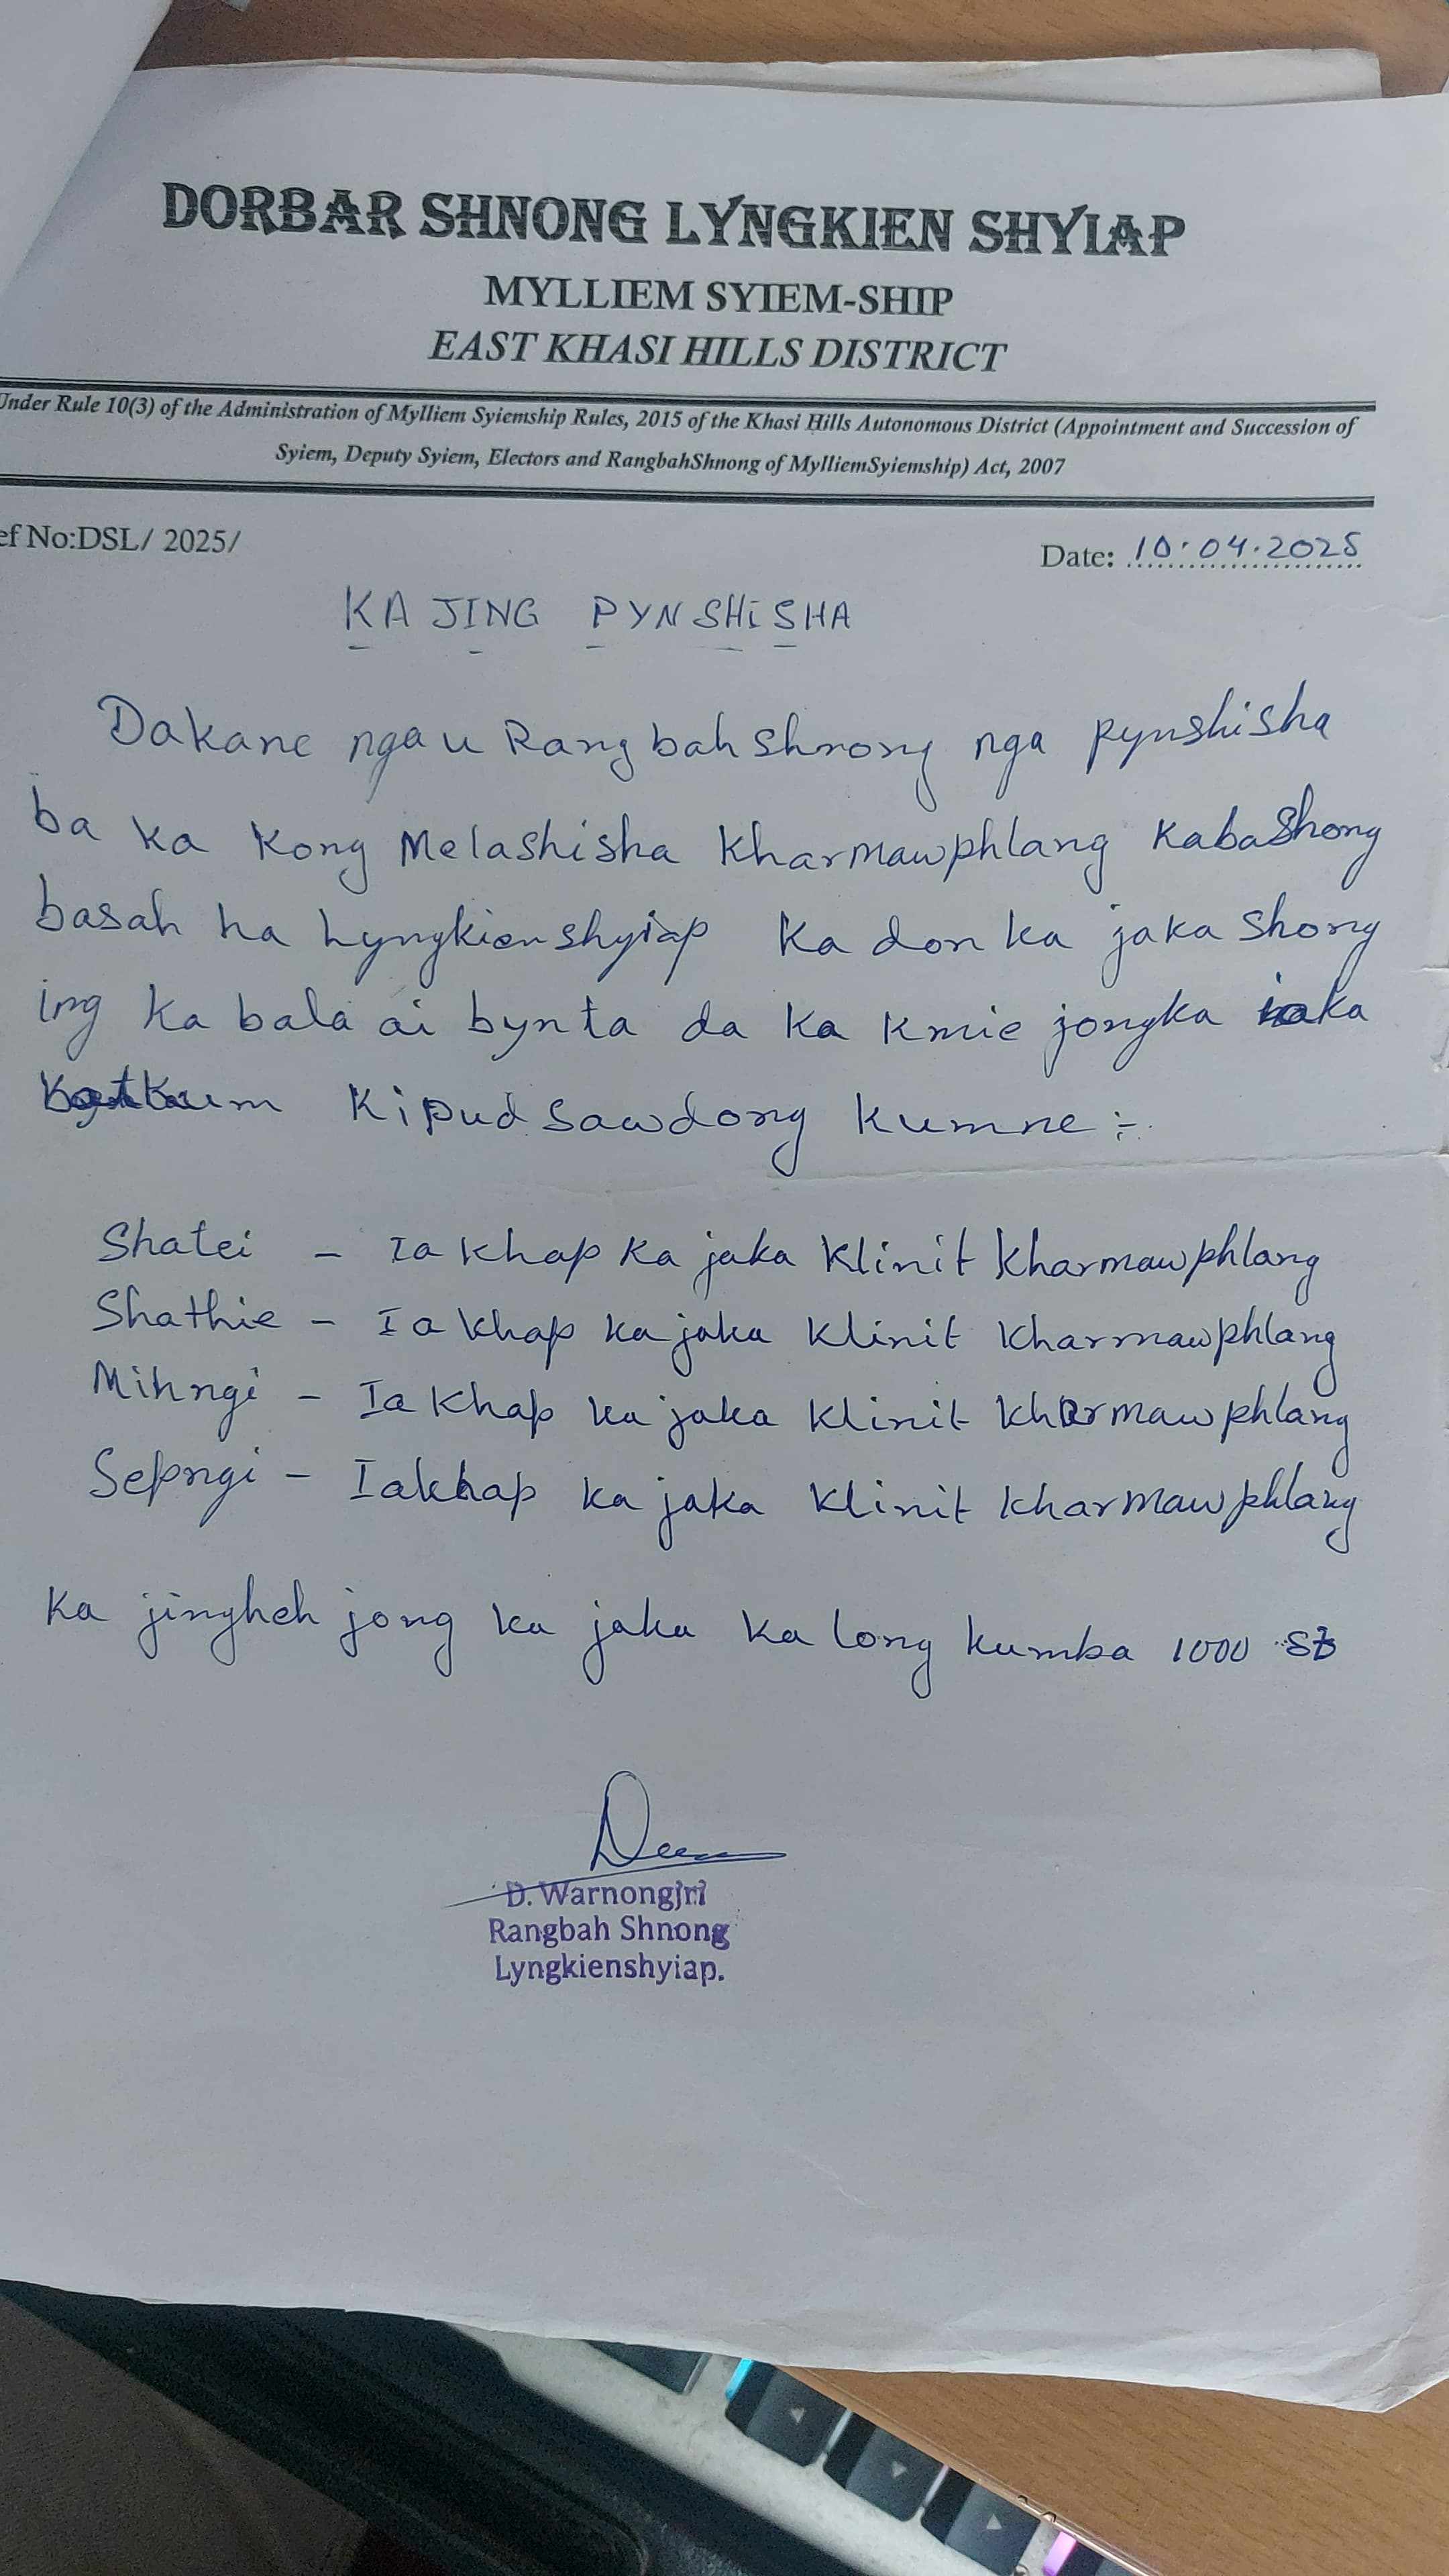 DORBAR SHNONG LYNGKIEN SHYIAP
MYLLIEM SYIEM-SHIP
EAST KHASI HILLS DISTRICT
Under Rule 10(3) of the Administration of Mylliem Syiemship Rules, 2015 of the Khasi Hills Autonomous District (Appointment and Succession of
Syiem, Deputy Syiem, Electors and RangbahShnong of MylliemSyiemship) Act, 2007
ef No:DSL/ 2025/
Date: 10.04.2025
KA JING PYNSHISHA
Dakane nga u Rangbah Shnong nga pynshisha
ba ka Kong Melashisha Kharmawphlang Kaba Shong
basah ha Lyngkienshyiap Ka don ka jaka Shong
ing ka bala ai bynta da ka Kmie jongka ka
Kipud Sawdong Kumne :-
Shatei - Ia Khap Ka jaka Klinit Kharmawphlang
Shathie - Ia Khap ka jaka Klinit Kharmawphlang
Mihngi - Ia Khap ka jaka Klinit Kharmawphlang
Sepngi - Iakhap ka jaka Klinit Kharmawphlang
Ka jingheh jong ka jaka Ka long kumba 1000
D. Warnongjri
Rangbah Shnong
Lyngkienshyiap.